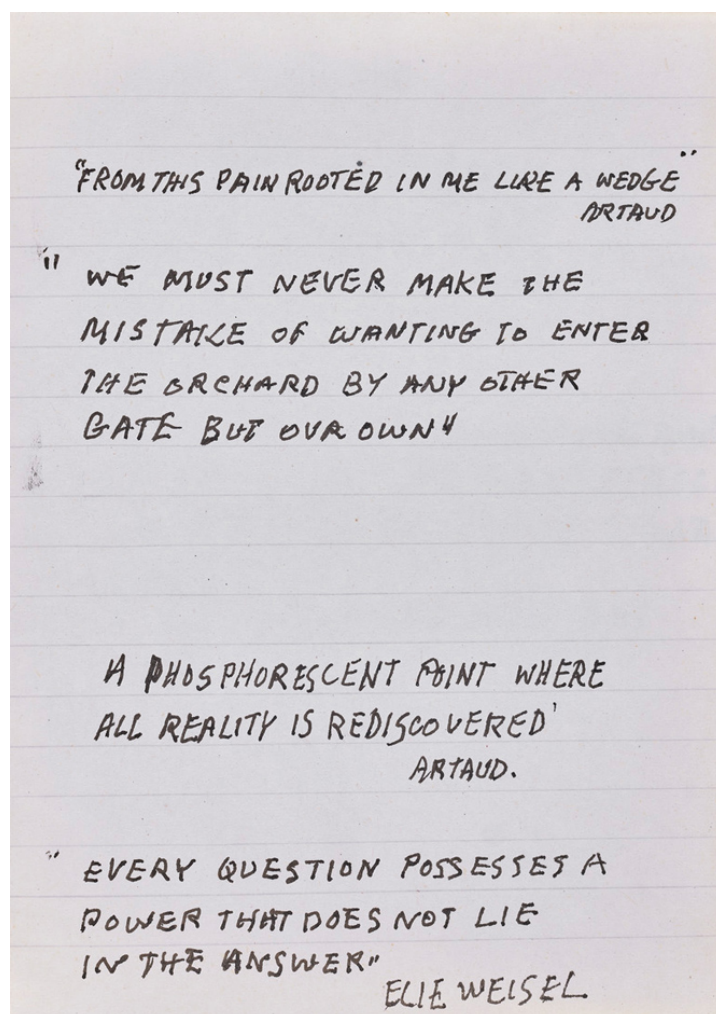 "FROM THIS PAIN ROOTED IN ME LIKE A WEDGE"
ARTAUD
" WE MUST NEVER MAKE THE
MISTAKE OF WANTING TO ENTER
THE ORCHARD BY ANY OTHER
GATE BUT OUR OWN"
A PHOSPHORESCENT POINT WHERE
ALL REALITY IS REDISCOVERED'
ARTAUD.
" EVERY QUESTION POSSESSES A
POWER THAT DOES NOT LIE
IN THE ANSWER"
ELIE WEISEL